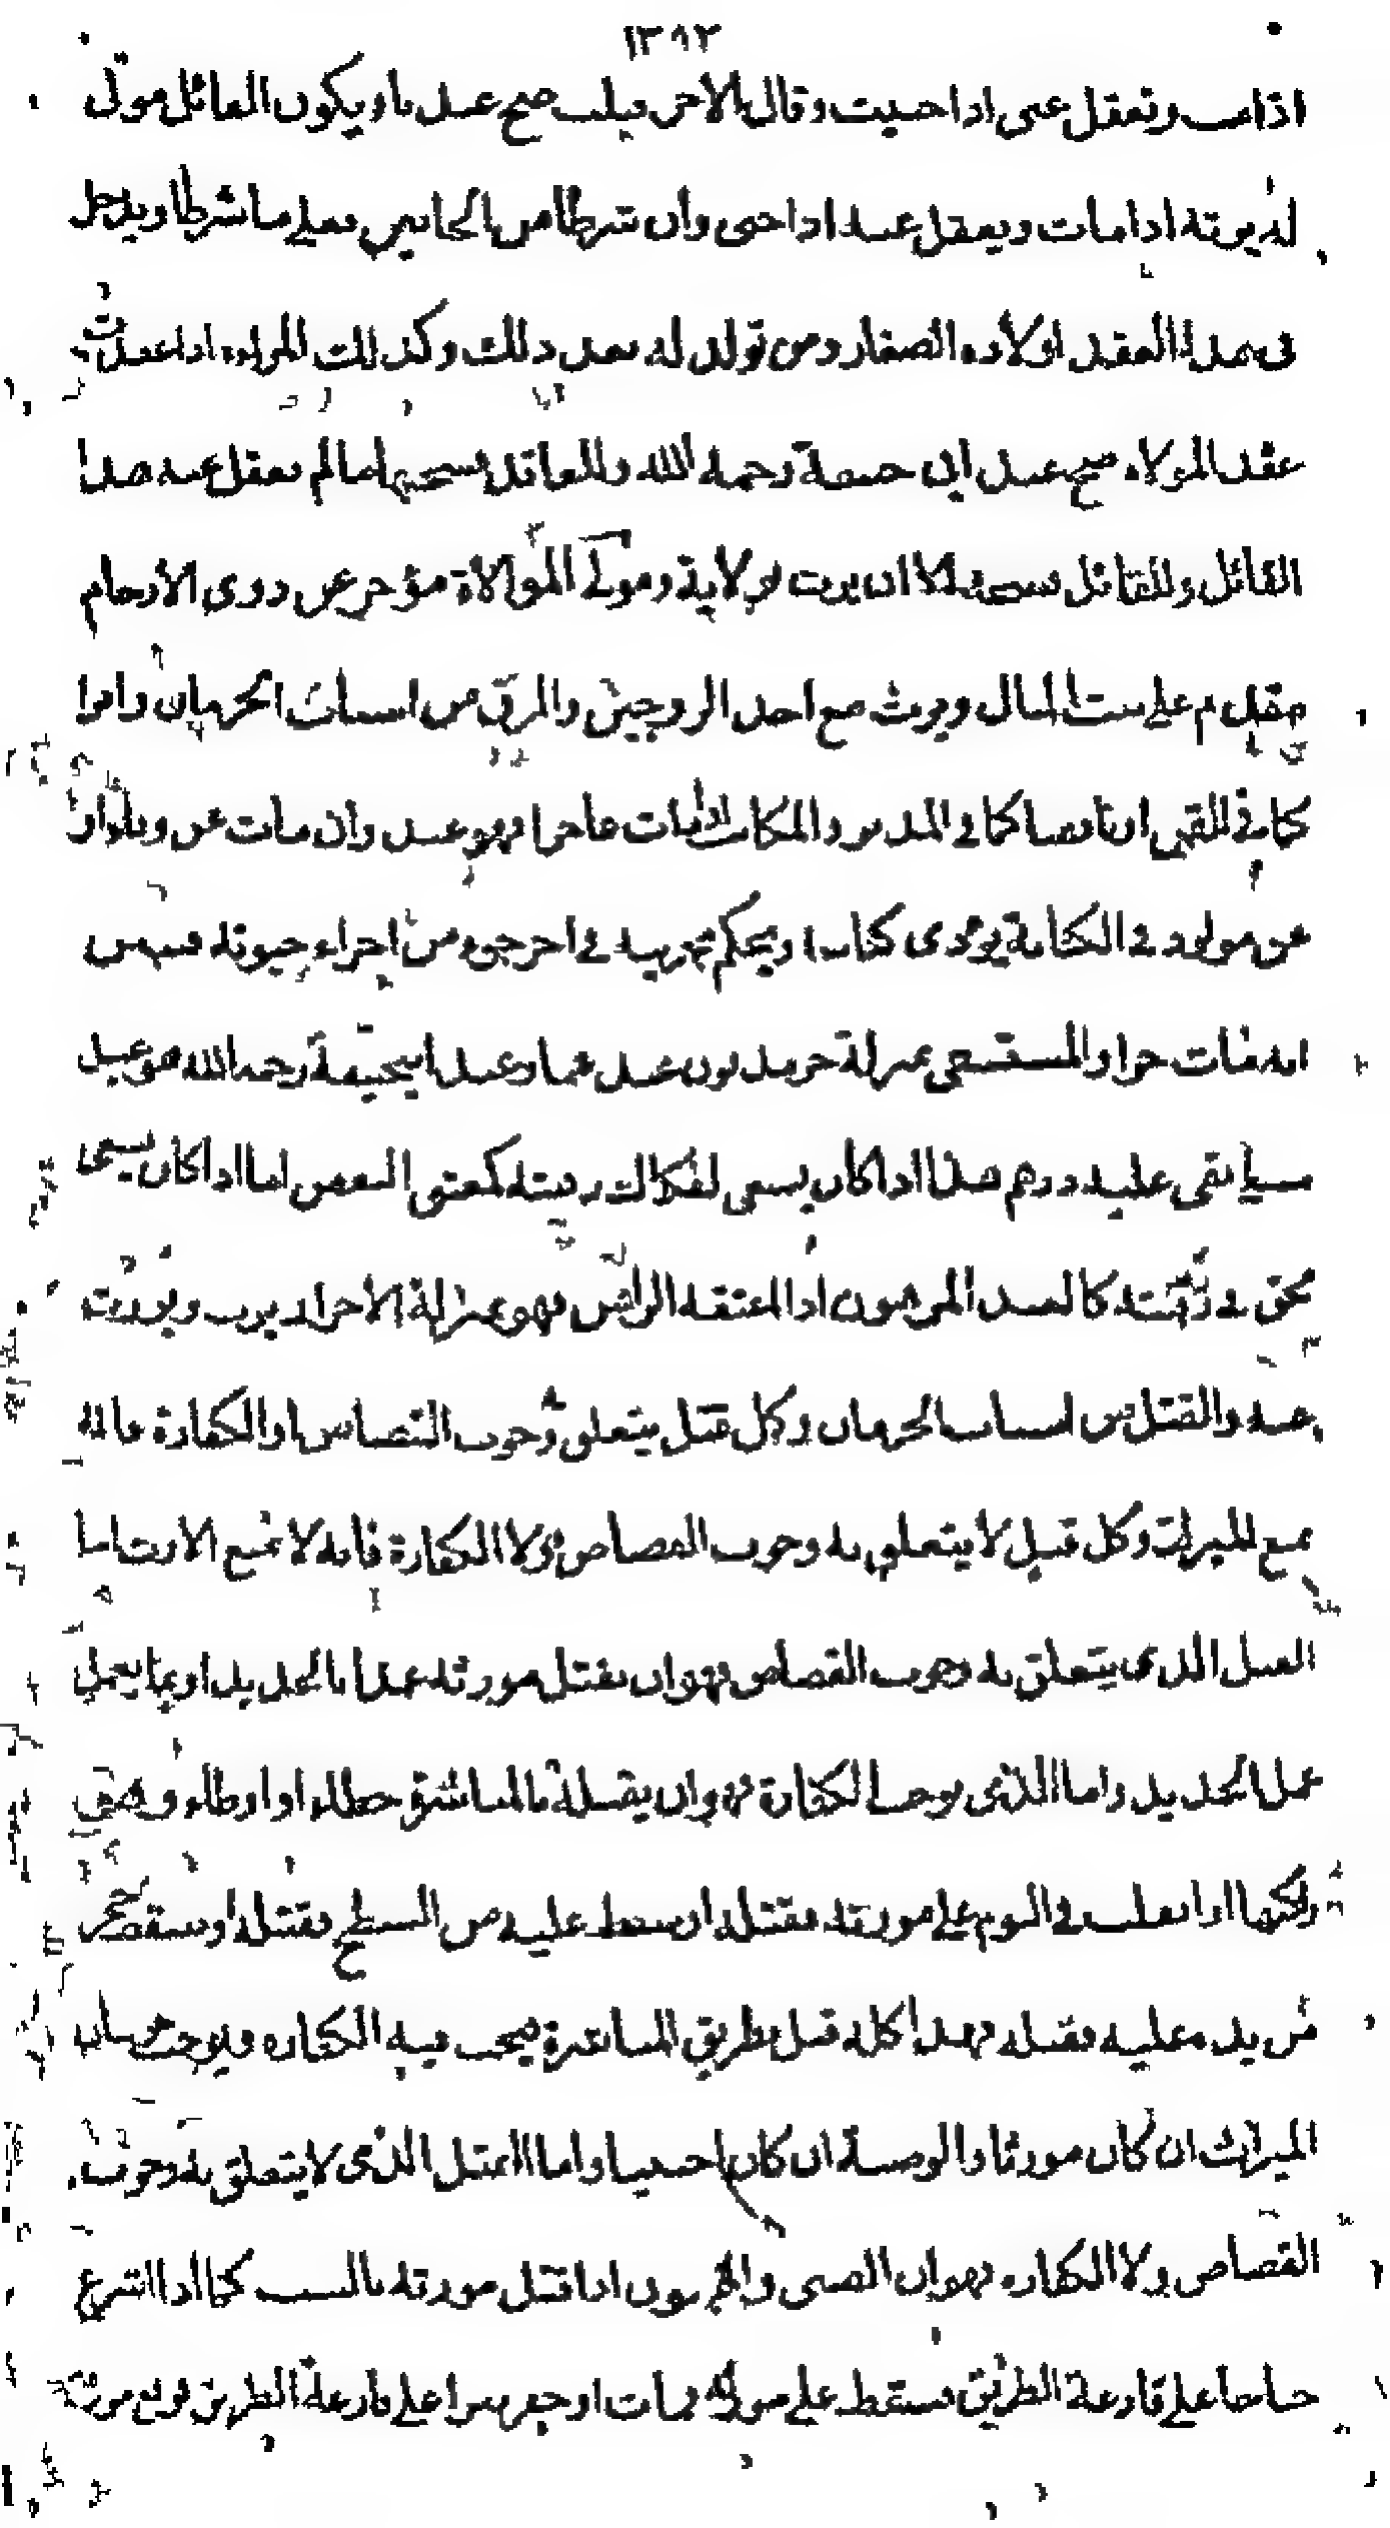 ١٣٩٢
اذا مت وتعقل عنى اذا جنيت وقال الاخر قبلت صح عندنا ويكون القائل مولى
له يرثه اذا مات ويعقل عنه اذا جنى وان شرطا من الجانبين فعلى ما شرطا ويدخل
فى هذا العقد اولاده الصغار ومن تولد له بعد ذلك وكذلك المراة اذا عقدت
عقد المولاة صح عند ابى حنيفة رحمه الله وللعاقد فسخها ما لم يعقل عنه هذا
القائل وللقائل ان يرث لولاية ومولى الموالاة مؤخر عن ذوى الارحام
مقدم على بيت المال ويرث مع احد الزوجين والرق من اسباب الحرمان وافرا
كان فى القن او ناقصا كما فى المدبر والمكاتب اذا مات عاجزا فهو عبد وان مات عن وفاء او
عن مولود فى الكتابة يؤدى كتابته ويحكم بحريته فى اخر جزء من اجزاء حيوته فتبين
انه مات حرا والمستسعى بمنزلة حر مديون عندهما وعند ابيحنيفة رحمه الله هو عبد
ما بقى عليه درهم هذا اذا كان يسعى لفكاك رقبته كمعتق البعض اما اذا كان يسعى
بحق فى رقبته كالعبد المرهون اذا اعتقه الراهن فهو بمنزلة الاحرار يرث ويورث
عنه والقتل من اسباب الحرمان وكل قتل يتعلق وجوب القصاص او الكفارة فانه
يمنع الميراث وكل قتل لا يتعلق به وجوب القصاص ولا الكفارة فانه لا يمنع الارث اما
القتل الذى يتعلق به وجوب القصاص فهو ان يقتل مورثه عمدا بالحديد او بما يعمل
عمل الحديد واما الذى يوجب الكفارة فهو ان يقتله بالمباشرة خطاء او اوطاء
او انقلب فى النوم على مورثه فقتله او سقط عليه من السطح فقتله او سقط حجر
من يده عليه فقتله فهذا كله قتل بطريق المباشرة فيجب فيه الكفاره ويوجب حرمان
الميراث ان كان مورثا والوصية ان كان اجنبيا واما القتل الذى لا يتعلق به وجوب
القصاص ولا الكفاره فهو ان الصبى والمجنون اذا قتل مورثه بالسبب كما اذا اشرع
جناحا على قارعة الطريق فسقط على مورثه فمات او حفر بيرا على قارعة الطريق فوقع مورثه